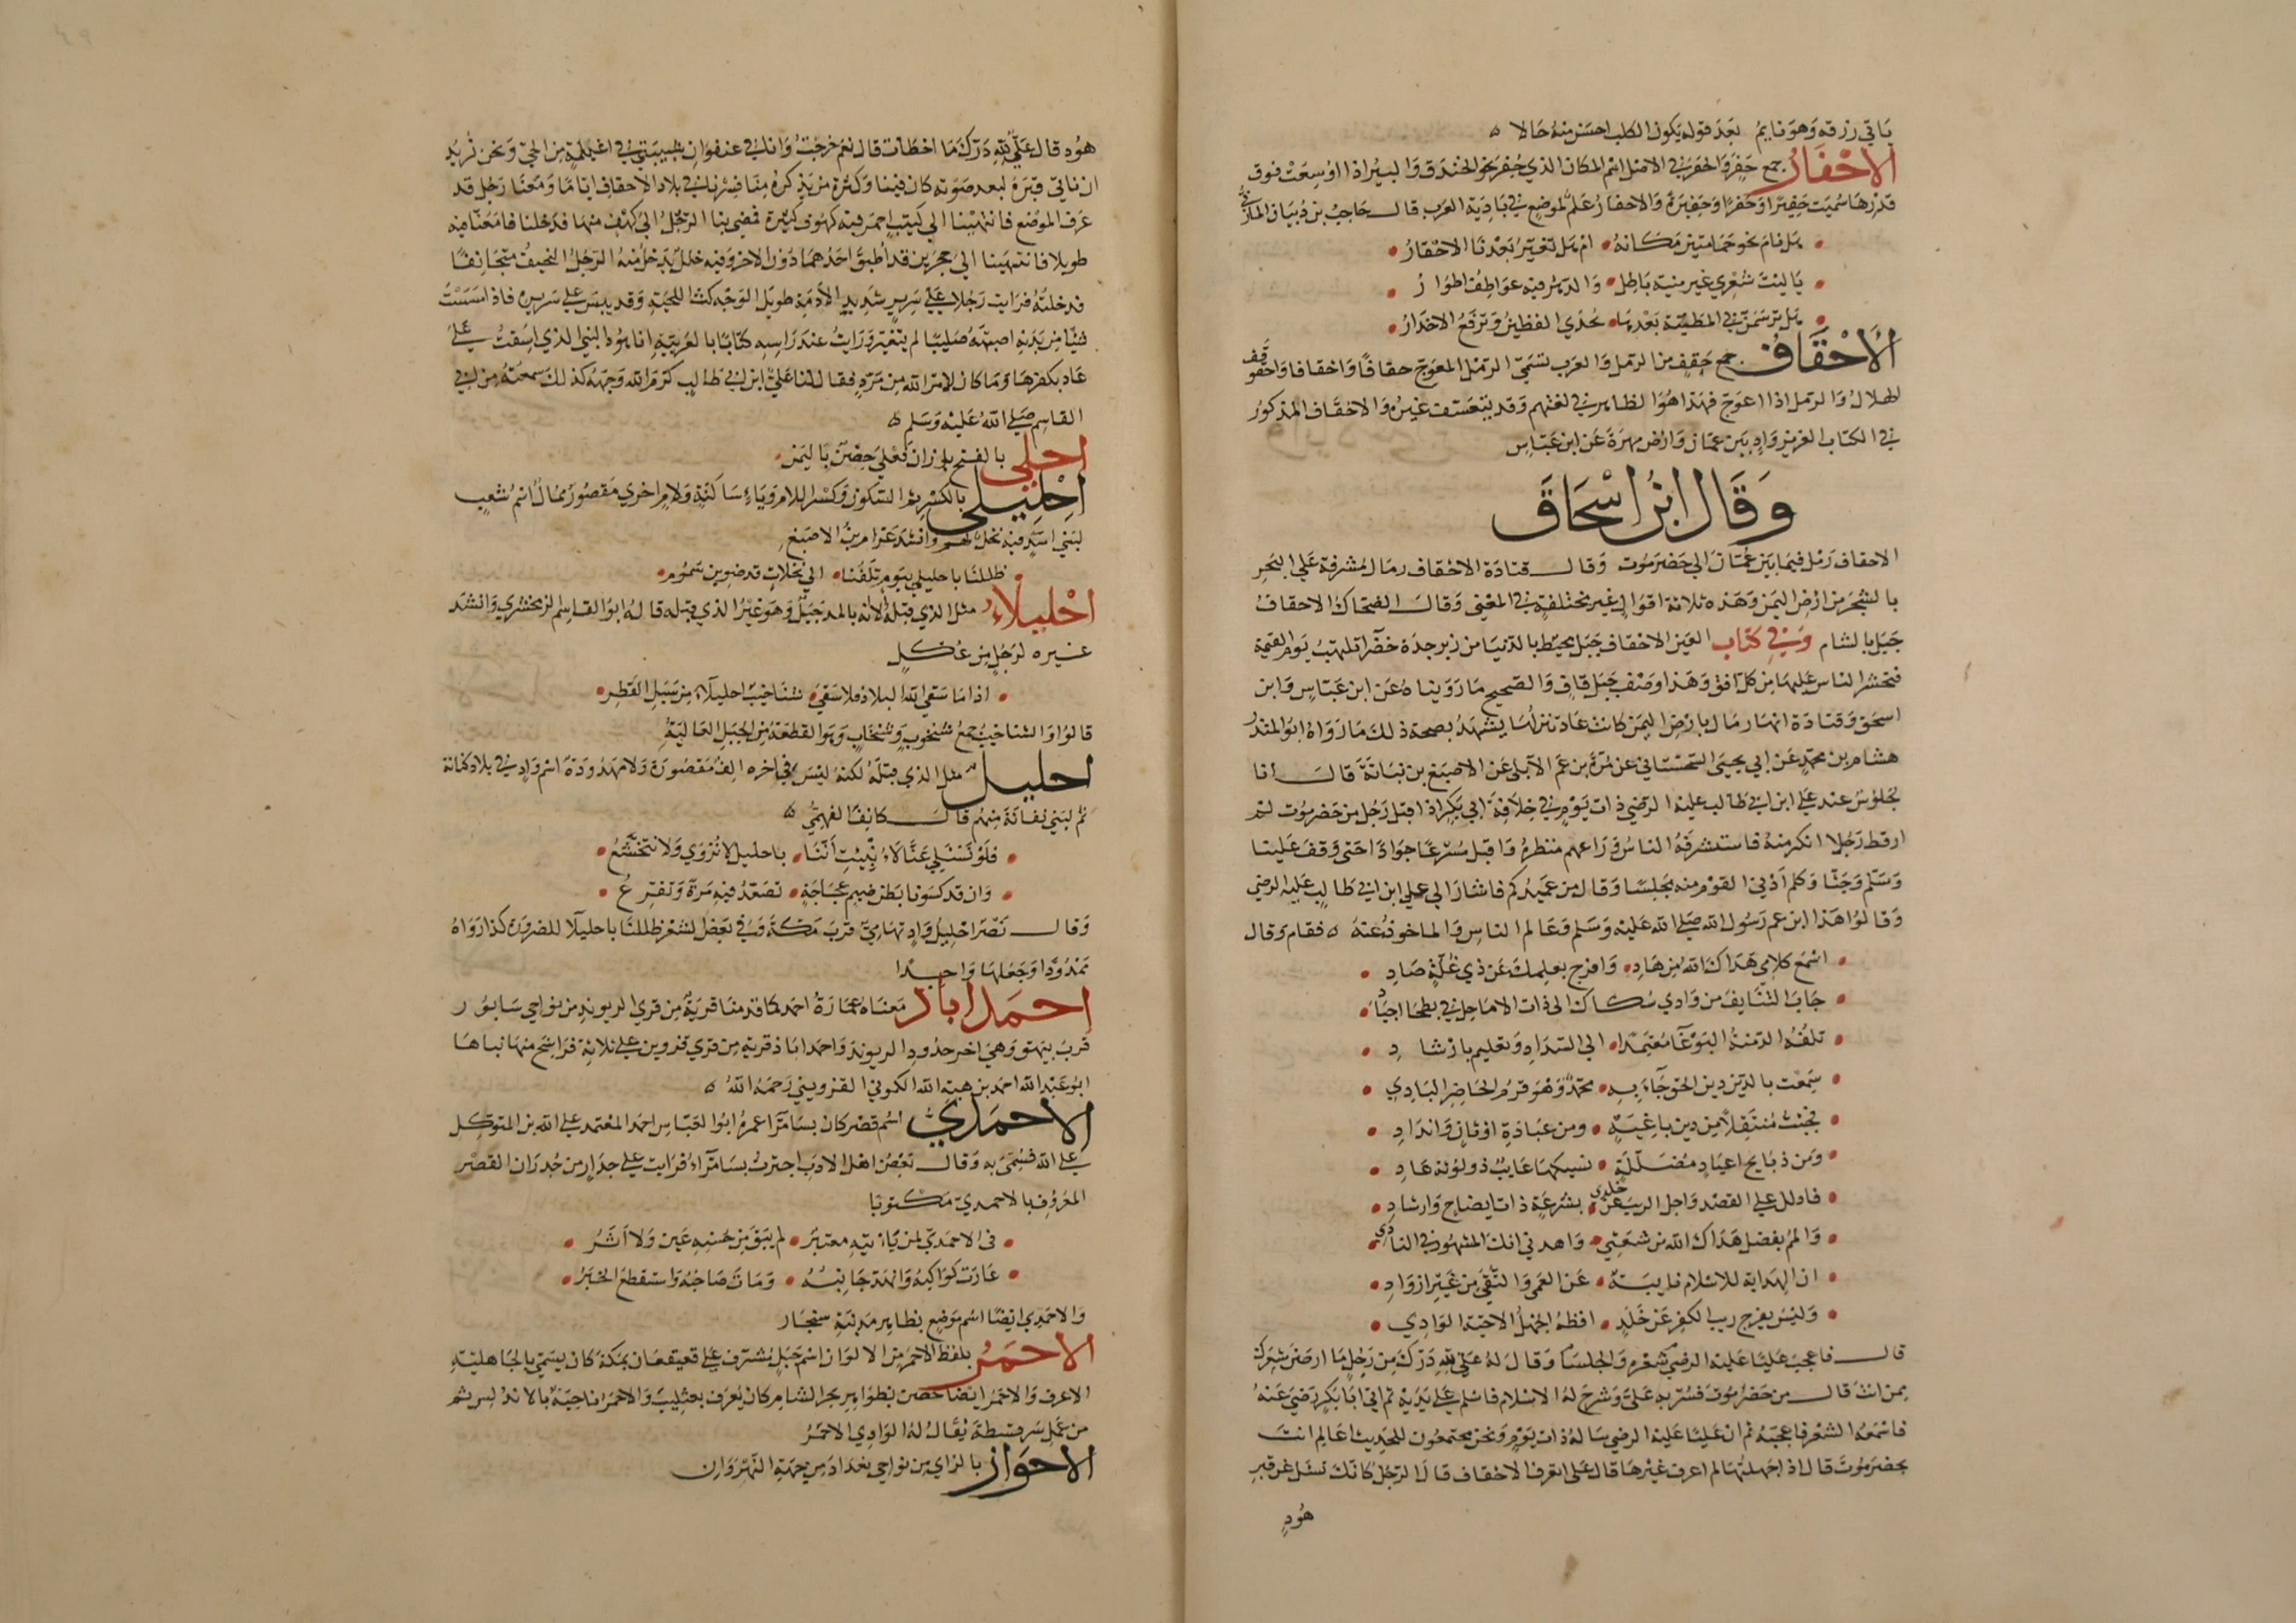 ياتي رزقه وهو نايم بعد قوله يكون الكلب احسن منه حالا ه
الاحفار جمع حفر والحفر في الاصل اسم المكان الذي حفر نحو الخندق والبير اذا اوسعت فوق
قدرها سميت حفيرا وحفرا وحفيرة والاحفار علم لموضع في بادية العرب قال حاجب بن ذبيان المازني
هل رام نحو حمامتين مكانه ام هل تغير بعدنا الاحفار
يا ليت شعري غير منية باطل والدهر فيه عواطف اطوار
هل ترسمن في المطية بعدها يحدي القطين وترفع الاخدار
الاحقاف جمع حقف من الرمل والعرب تسمي الرمل المعوج حقافا واحقافا واحقوقف
الهلال والرمل اذا اعوج فهذا هو الظاهر في لغتهم وقد يتعسف غيره والاحقاف المذكور
في الكتاب العزيز واد بين عمان وارض مهرة عن ابن عباس
وقال ابن اسحاق
الاحقاف رمل فيما بين عمان الي حضرموت وقال قتادة الاحقاف رمال مشرفة علي البحر
بالشحر من ارض اليمن وهذه ثلاثة اقوال غير مختلفة في المعني وقال الضحاك الاحقاف
جبل بالشام وفي كتاب العين الاحقاف جبل محيط بالدنيا من زبرجدة خضرا تلهب يوم القيمة
فتحشر الناس عليها من كل افق وهذا وصف جبل قاف والصحيح ما رويناه عن ابن عباس وابن
اسحق وقتادة انها رمال بارض اليمن كانت عاد تنزلها يشهد بصحة ذلك ما رواه ابو المنذر
هشام بن محمد عن ابي يحيي السجستاني عن مرة بن عمر الآبلي عن الاصبغ بن نباتة قال انا
لجلوس عند علي ابن ابي طالب عليه الرضي ذات يوم في خلافة ابي بكر اذ اقبل رجل من حضرموت لم
ار قط رجلا انكر منه فاستشرفه الناس وراعهم منظره واقبل مسرعا جوادا حتي وقف علينا
وسلم وجثا وكلم ادني القوم منه مجلسا وقال من عميدكم فاشار الي علي ابن ابي طالب عليه الرضي
وقالوا هذا ابن عم رسول الله صلي الله عليه وسلم وعالم الناس والماخوذ عنه ه فقام وقال
اسمع كلامي هداك الله من هاد وافرج بعلمك عن ذي غلة صاد
جاب التنايف من وادي سكاك الي ذات الاماحل في بطحا اجياد
تلفه الدمنة البوغا معتمدا الي السداد وتعليم بارشاد
سمعت بالدين دين الحق جآء به محمد وهو قرم الحاضر البادي
فجئت منتقلا من دين باغية ومن عبادة اوثان وانداد
ومن ذبايح اعياد مضللة نسيكها غايب ذو لوثة عاد
فادلل علي القصد واجل الريب عن خلدي بشرعة ذات ايضاح وارشاد
والمم بفضل هداك الله من شعثي واهدني انك المشهور في النادي
ان الهداية للاسلام نايبة عن العمي والتقي من خير ازواد
وليس يفرج ريب الكفر عن خلد افظه الجهل الا حية الوادي
قال فاعجب عليا عليه الرضي شعره والجلسا وقال له علي لله درك من رجل ما ارصن شعرك
ممن انت قال من حضرموت فسر به علي وشرح له الاسلام فاسلم علي يديه ثم اتي ابا بكر رضي عنه
فاسمعه الشعر فاعجبه ثم ان عليا عليه الرضي ساله ذات يوم ونحن مجتمعون للحديث اعالم انت
بحضرموت قال اذا جهلتها لم اعرف غيرها قال علي اتعرف الاحقاف قال الرجل كانك تسئل عن قبر
هود
هود قال علي لله درك ما اخطات قال نعم خرجت وانا في عنفوان شبيبتي في اغيلمة من الحي ونحن نريد
ان ناتي قبره لبعد صوته كان فينا وكثرة من يذكره منا فسرنا في بلاد الاحقاف اياما ومعنا رجل قد
عرف الموضع فانتهينا الي كثيب احمر فيه كهوف كثيرة فمضي بنا الرجل الي كهف منها فدخلنا فامعنا فيه
طويلا فانتهينا الي حجرين قد اطبق احدهما دون الاخر وفيه خلل يدخل منه الرجل النحيف متجانفا
فدخلته فرايت رجلا علي سرير شديد الادمة طويل الوجه كث اللحية وقد يبس علي سريره فاذا مسست
شيئا من بدنه اصبته صليبا لم يتغير ورايت عند راسه كتابا بالعربية انا هود النبي الذي اسفت علي
عاد بكفرها وما كان لامر الله من مرد فقال لنا علي ابن ابي طالب كرم الله وجهه كذلك سمعته من ابي
القاسم صلي الله عليه وسلم ه
احلي بالفتح بوزان فعلي حصن باليمن
احليلي بالكسر ثم السكون وكسر اللام وياء ساكنة ولام اخري مقصور ممال اسم شعب
لبني اسد فيه نخل لهم وانشد عرام بن الاصبغ
ظللنا باحليلي بيوم تلفنا الي نخلات قد ضوين سموم
احليلاء مثل الذي قبله الا انه بالمد جبل وهو غير الذي قبله قاله ابو القاسم الزمخشري وانشد
غيره لرجل من عكل
اذا ما سقي الله البلاد فلا سقي شناخيب احليلاء من سبل القطر
قالوا والشناخيب جمع شنخوب وشنخاب وهو القطعة من الجبل العالية
احليل مثل الذي قبله لكنه ليس في اخره الف مقصورة ولا ممدودة اسم واد في بلاد كنانة
ثم لبني نفاثة منهم قال كانف الفهمي ه
فلو تسئلي عنا لا نبيت اننا باحليل لا نزوي ولا نتخشع
وان قد كسونا بطن ضيم عجاجة تصعد فيه مرة وتفرع
وقال نصر احليل واد تهامي قرب مكة وفي بعض الشعر ظللنا باحليلا للضرورة كذا رواه
ممدودا وجعلها واحدا
احمد اباذ معناه عمارة احمد كما قدمنا قرية من قري الريوند من نواحي سابور
قرب بيهق وهي اخر حدود الريوند واحمد اباذ قرية من قري قزوين علي ثلاثة فراسخ منها بناها
ابو عبد الله احمد بن هبة الله الكموني القزويني رحمه الله ه
الاحمدي اسم قصر كان بسامرا عمره ابو العباس احمد المعتمد علي الله بن المتوكل
علي الله فسمي به وقال بعض اهل الادب اجتزت بسامراء فرايت علي جدار من جدران القصر
المعروف بالاحمدي مكتوبا
في الاحمدي لمن ياتيه معتبر لم يبق من حسنه عين ولا اثر
غارت كواكبه وانهد جانبه ومات صاحبه واستقطع الخبر
والاحمدي ايضا اسم موضع بظاهر مدينة سنجار
الاحمر بلفظ الاحمر من الالوان اسم جبل مشرف علي قعيقعان بمكة كان يسمي بالجاهلية
الاعرف والاحمر ايضا حصن بظواهر بحر الشام كان يعرف بعثليب والاحمر ناحية بالاندلس ثم
من عمل سرقسطة يقال له الوادي الاحمر
الاحواز بالزاي من نواحي بغداد من جهة النهروان